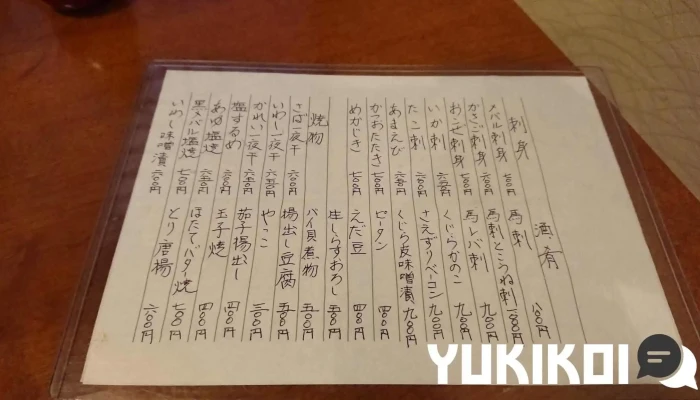 刺身
メバル刺身 七〇〇円
かさご刺身 六〇〇円
おこぜ刺身 七〇〇円
いか刺 六五〇円
たこ刺 六〇〇円
あまえび 六五〇円
かつおたたき 七〇〇円
めかじき 七〇〇円
焼物
さば一夜干 六〇〇円
いわし一夜干 六五〇円
かれい一夜干 六五〇円
塩するめ 六〇〇円
あゆ塩焼 六五〇円
黒メバル塩焼 七〇〇円
いわし味噌漬 六〇〇円
酒肴
馬刺 八〇〇円
馬刺とこうね刺 一、〇〇〇円
馬レバ刺 九〇〇円
くじらかのこ 九〇〇円
さえずりベーコン 九〇〇円
くじら皮味噌漬 九〇〇円
ピータン 四〇〇円
えだ豆 四〇〇円
生しらすおろし 五〇〇円
バイ貝煮物 五〇〇円
揚出し豆腐 五〇〇円
やっこ 三〇〇円
茄子揚出し 四〇〇円
玉子焼 四〇〇円
ほたてバター焼 七〇〇円
とり唐揚 六〇〇円
YUKIKOI